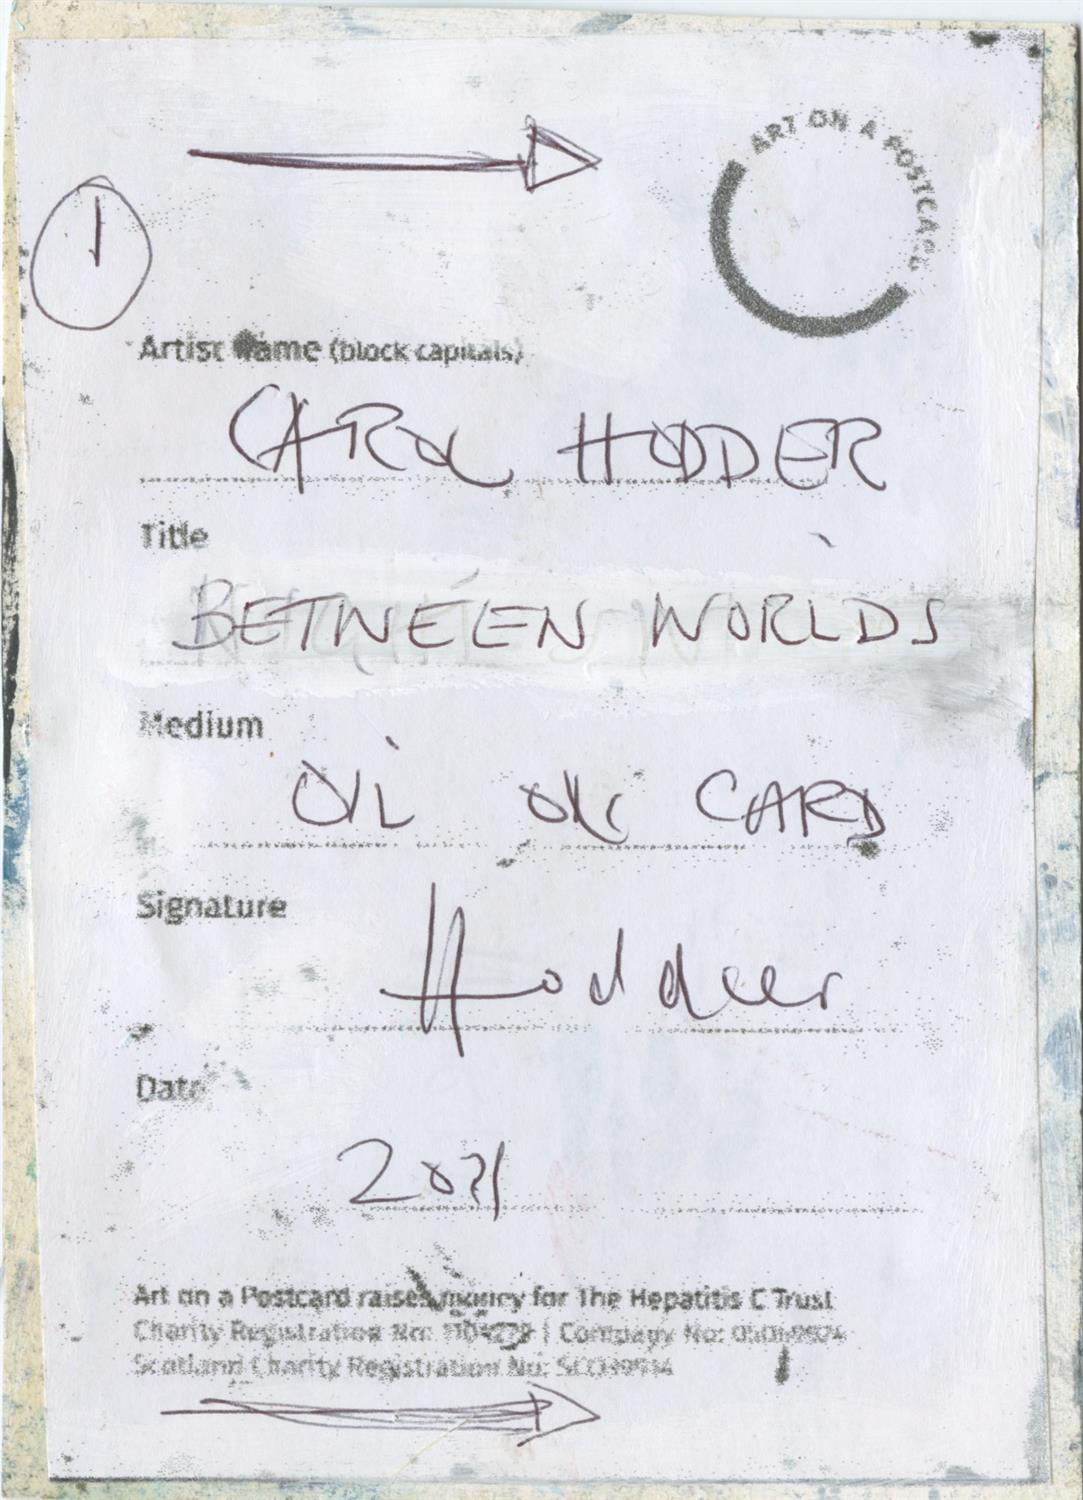 ART ON A POSTCARD
1
Artist name (block capitals)
CAROL HODDER
Title
BETWEEN WORLDS
Medium
OIL ON CARD
Signature
Hodder
Date
2021
Art on a Postcard raises money for The Hepatitis C Trust
Charity Registration No: | Company No:
Scotland Charity Registration No: